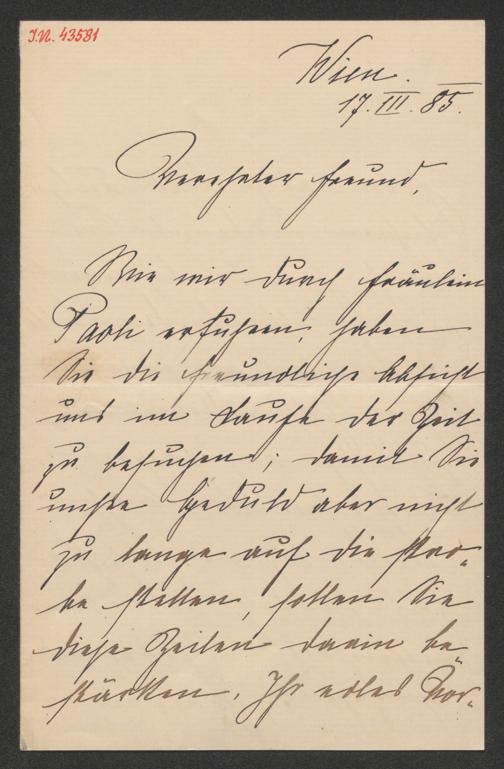 I.N. 43581
Wien.
17. III. 85.
Verehrter Freund,
Wie wir durch Fräulein
Paoli erfuhren, haben
Sie die freundliche Absicht
uns im Laufe der Zeit
zu besuchen; damit Sie
unsre Geduld aber nicht
zu lange auf die Pro-
be stellen, sollen Sie
diese Zeilen darin be
stärken. Ihr edles Vor-